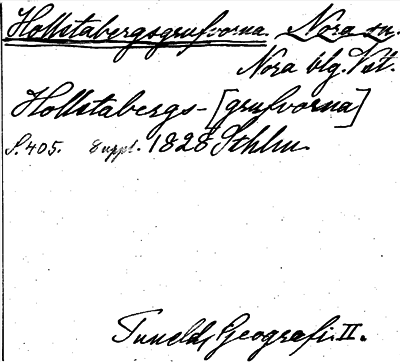 Hollstabergsgrufvorna. Nora sn.
Nora blg. Vst.
Hollstabergs-[grufvorna]
S. 405. 8 uppl. 1828 Sthlm.
Tunelds Geografi. II.